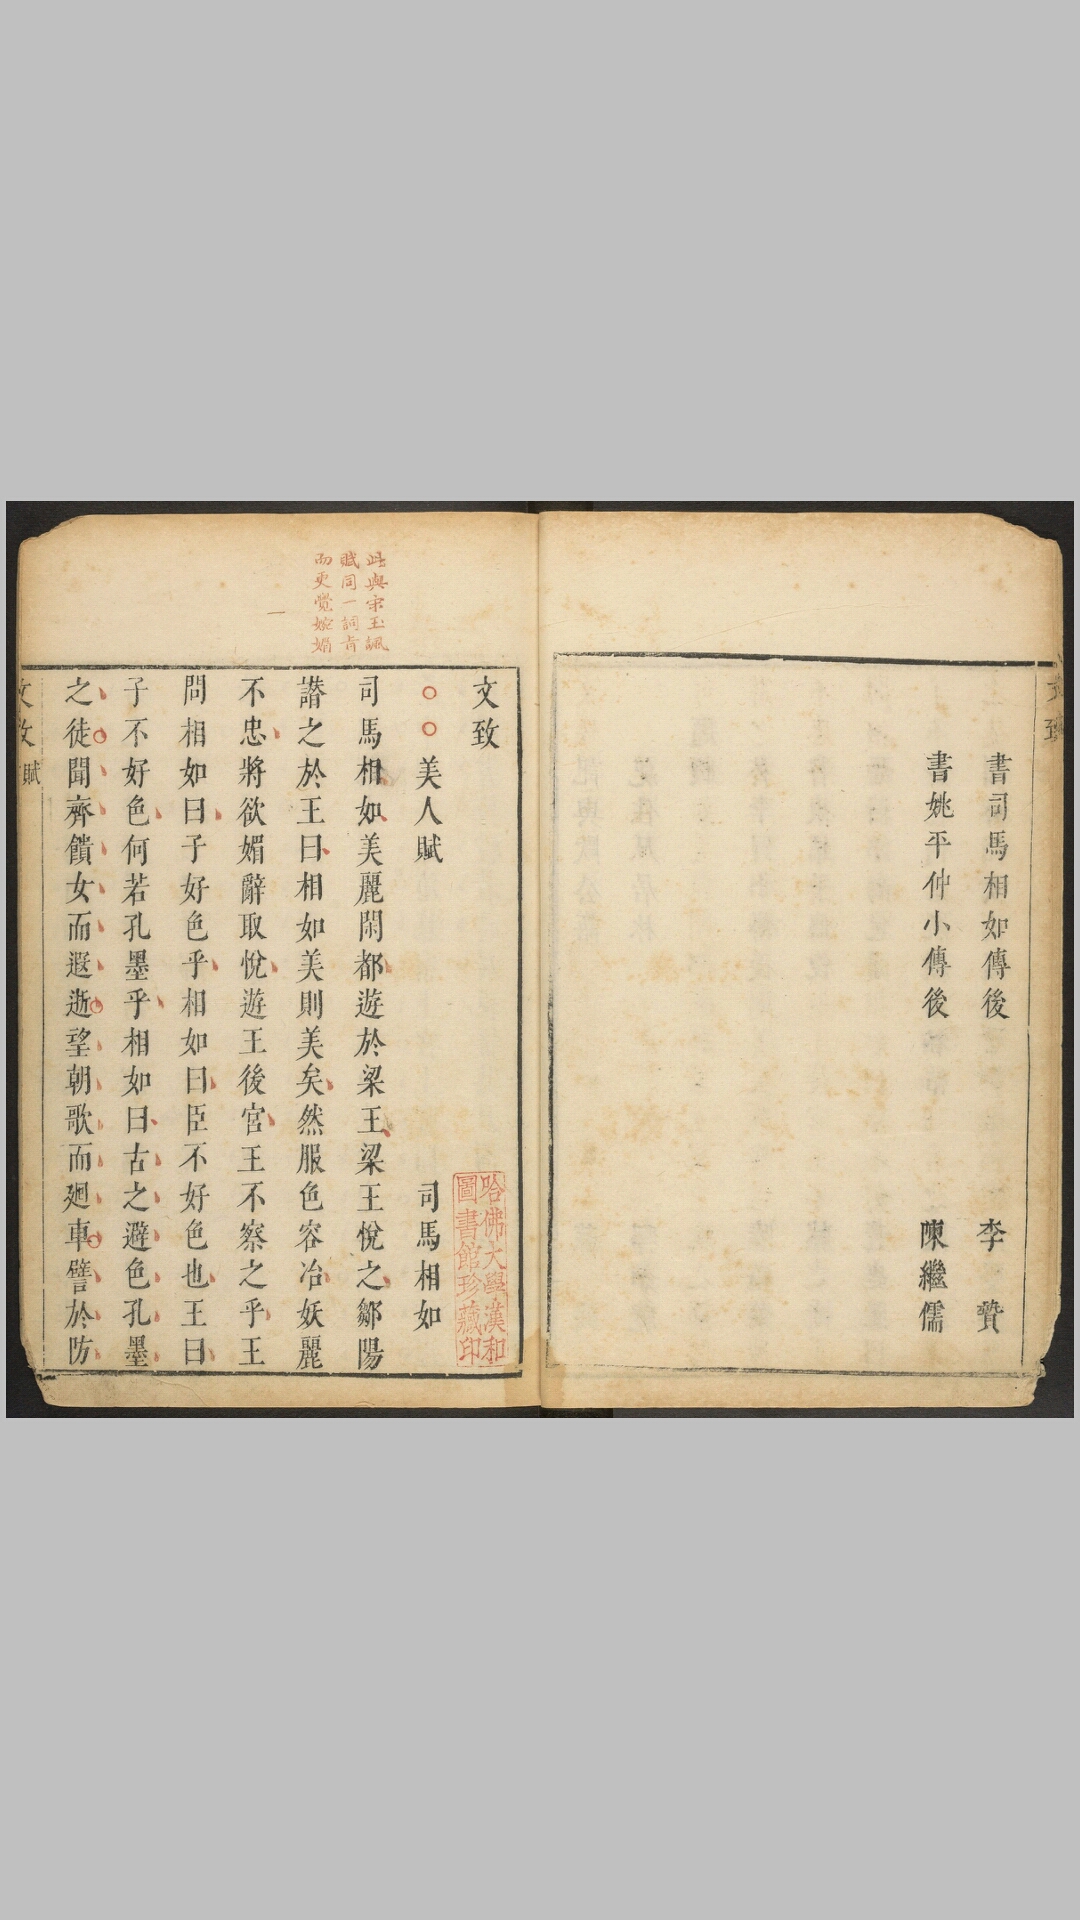 書司馬相如傳後 李贄
書姚平仲小傳後 陳繼儒
文致
美人賦 司馬相如
司馬相如美麗閑都遊於梁王梁王悅之鄒陽
譖之於王曰相如美則美矣然服色容冶妖麗
不忠將欲媚辭取悅遊王後宮王不察之乎王
問相如曰子好色乎相如曰臣不好色也王曰
子不好色何若孔墨乎相如曰古之避色孔墨
之徒聞齊饋女而遐逝望朝歌而廻車譬於防
文致 賦
此與宋玉諷
賦同一詞旨
而更覺婉媚
哈佛大學漢和
圖書館珍藏印